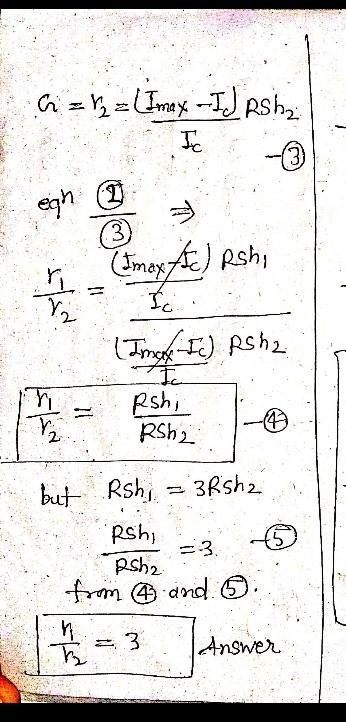 G = r₂ = (Imax - Ic) RSh₂ / Ic - ③
eqn ① / ③ ⇒
r₁ / r₂ = (Imax - Ic) RSh₁ / Ic
(Imax - Ic) RSh₂ / Ic
r₁ / r₂ = RSh₁ / RSh₂ - ④
but RSh₁ = 3RSh₂
RSh₁ / RSh₂ = 3 - ⑤
from ④ and ⑤.
r₁ / r₂ = 3 Answer